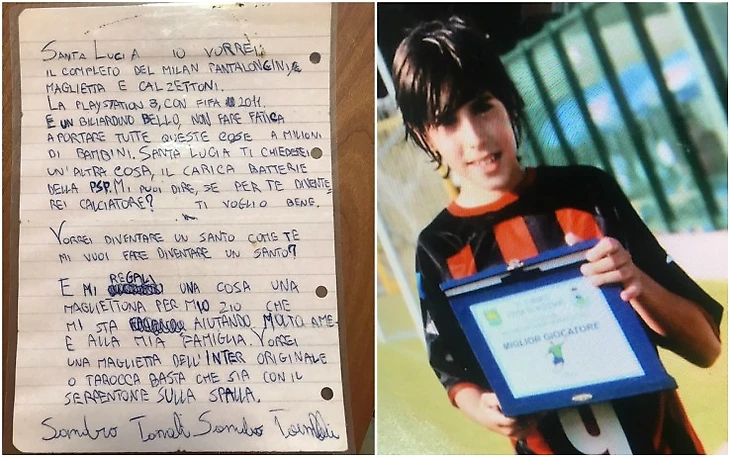 SANTA LUCIA IO VORREI
IL COMPLETO DEL MILAN PANTALONCINI,
MAGLIETTA E CALZETTONI.
LA PLAYSTATION 3, CON FIFA 2011.
E UN BILIARDINO BELLO, NON FARE FATICA
A PORTARE TUTTE QUESTE COSE A MILIONI
DI BAMBINI. SANTA LUCIA TI CHIEDEREI
UN'ALTRA COSA, IL CARICA BATTERIE
DELLA PSP. MI PUOI DIRE, SE PER TE DIVENTE
REI CALCIATORE? TI VOGLIO BENE.
VORREI DIVENTARE UN SANTO COME TE
MI VUOI FARE DIVENTARE UN SANTO?
E MI REGALI UNA COSA UNA
MAGLIETTONA PER MIO ZIO CHE
MI STA AIUTANDO MOLTO A ME
E ALLA MIA FAMIGLIA. VORREI
UNA MAGLIETTA DELL'INTER ORIGINALE
O TAROCCA BASTA CHE SIA CON IL
SERPENTONE SULLA SPALLA.
Sandro Tonali Sandro Tonali
MIGLIOR GIOCATORE
9